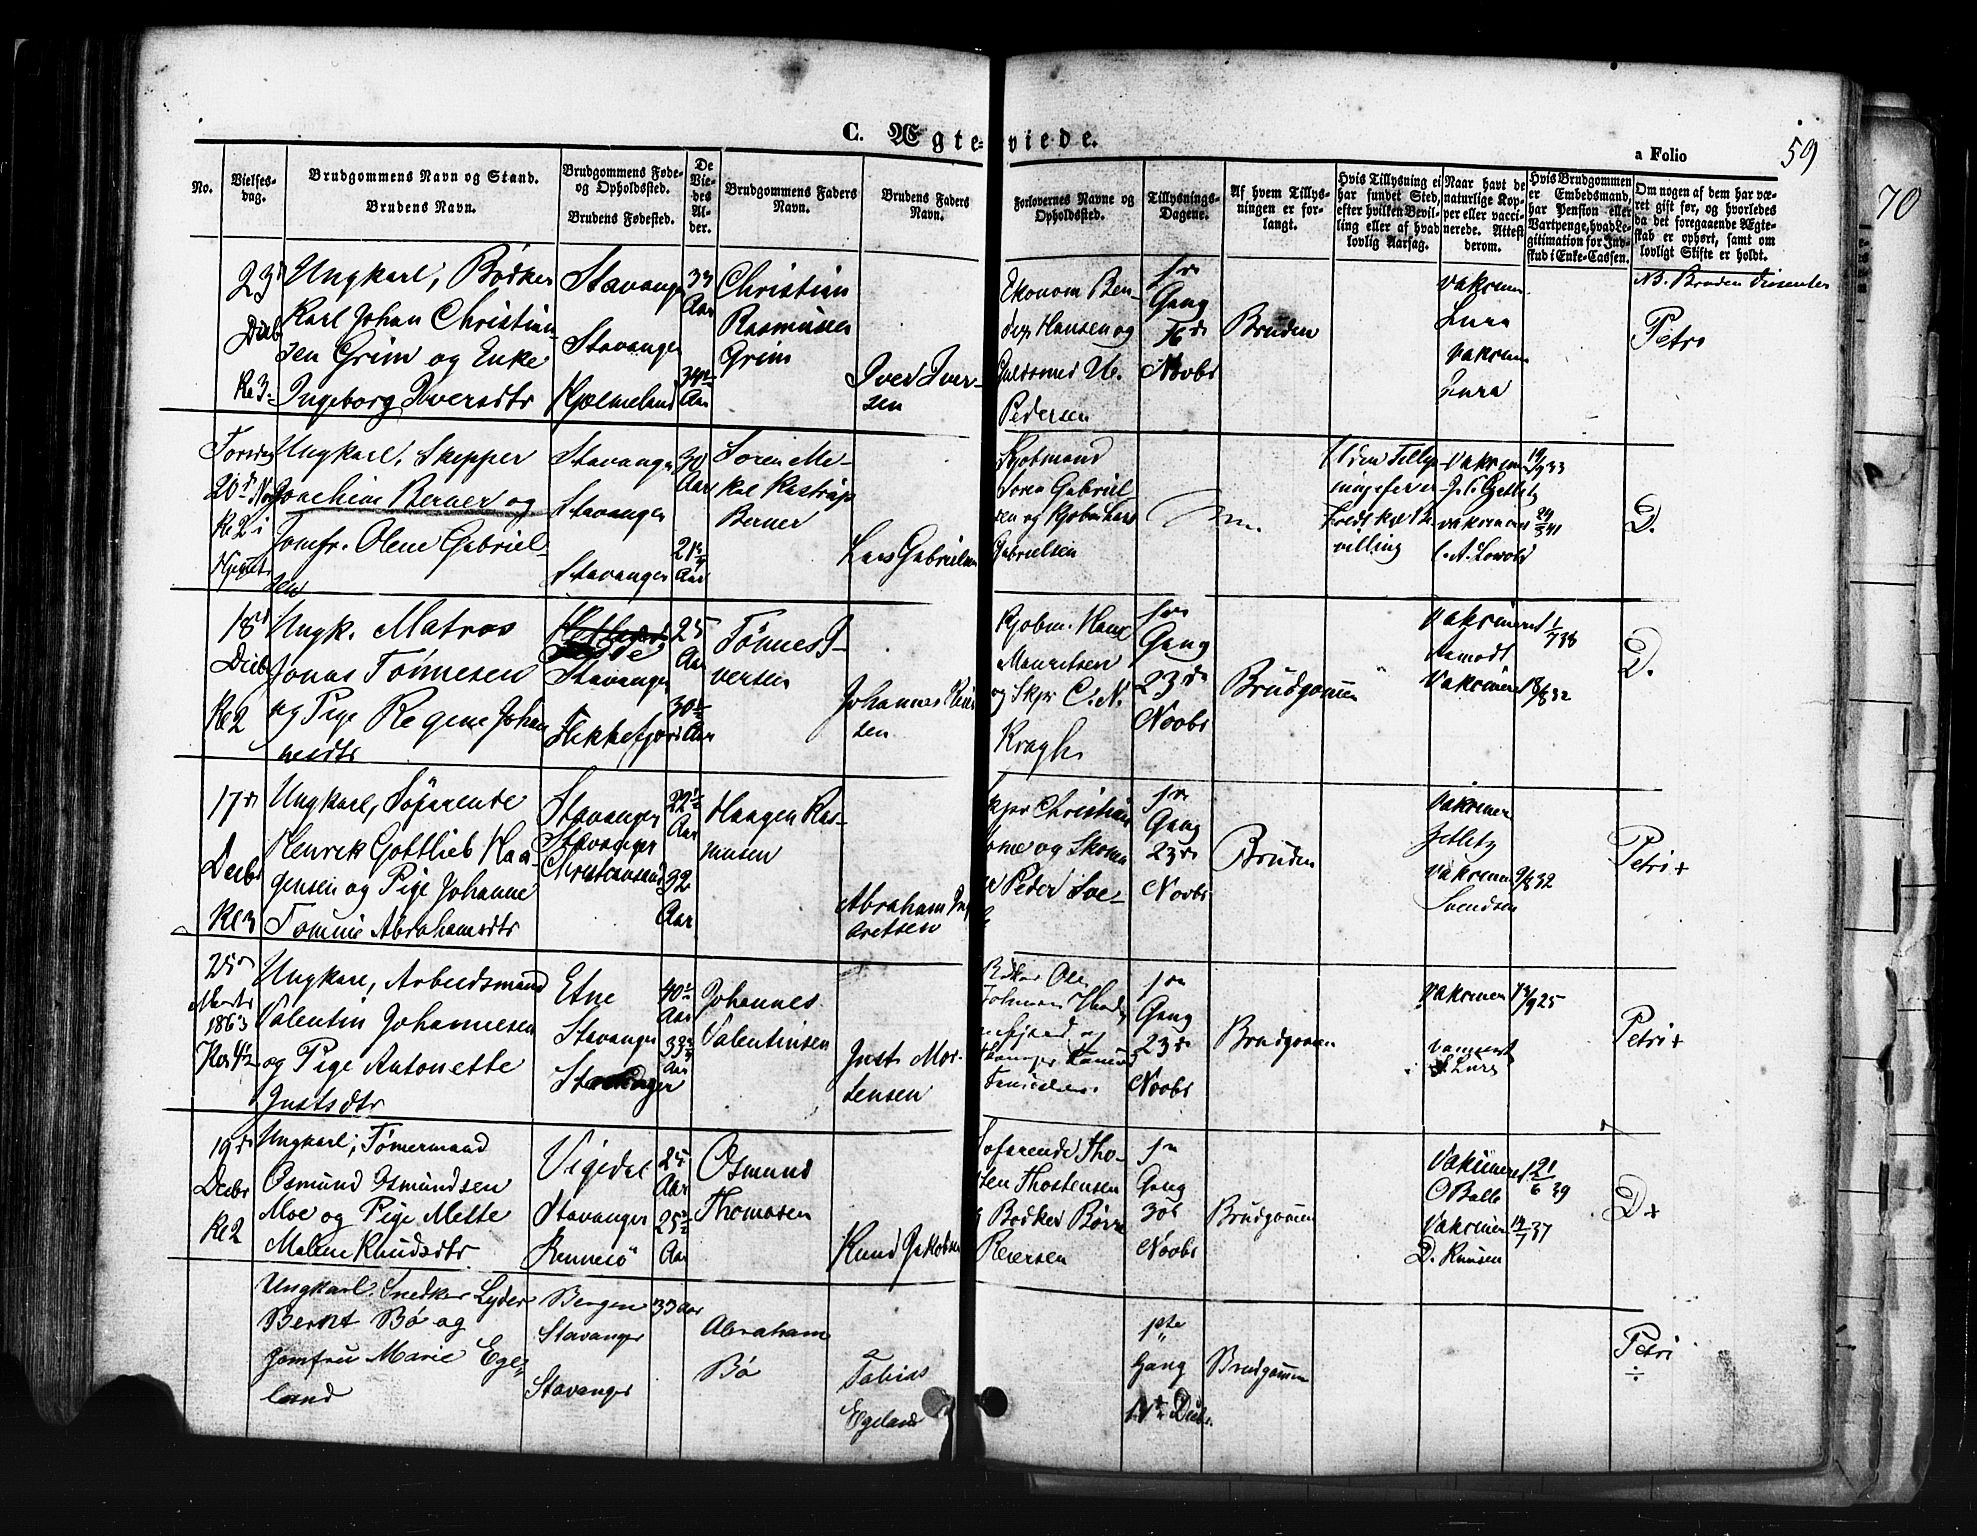 C. Ægteviede.
a Folio
59
70
No.
Vielses-
dag.
Brudgommens Navn og Stand.
Brudens Navn.
Brudgommens Føde-
og Opholdssted.
Brudens Fødested.
De
Vie-
des
Al-
der.
Brudgommens Faders
Navn.
Brudens Faders
Navn.
Forlovernes Navne og
Opholdssted.
Tillysnings-
Dagene.
Af hvem Tillys-
ningen er for-
langt.
Hvis Tillysning ei
har fundet Sted,
efter hvilken Bevil-
ling eller af hvad
lovlig Aarsag.
Naar havt de
naturlige Kop-
per eller vacci-
nerede. Attest
derom.
Hvis Brudgommen
er Embedsmand,
har Pension eller
Vartpenge, hvad Le-
gitimation for Ind-
skud i Enke-Cassen.
Om nogen af dem har væ-
ret gift før, og hvorledes
da det foregaaende Ægte-
skab er ophørt, samt om
lovligt Skifte er holdt.
23d
Decb
Kl 3
Ungkarl, Bødker
Karl Johan Christian-
sen Grim og Enke
Ingeborg Iversdtr
Stavanger
Stavanger
Hjelmeland
33
Aar
34½
Aar
Christian
Rasmussen
Grim
Iver Iver-
sen
Ekonom Ben-
Hansen og
Guldsmed
Pedersen
1ste
Gang
16de
Novbr
Bruden
Vaksineret
Lura
Vaksineret
Lura
NB. Bruden Dissenter
Petri
Torsdag
20d Nov
Kl 2 i
Ungkarl, Skipper
Joachim Berner og
Jomfr. Olene Gabriel-
sen
Stavanger
Stavanger
Stavanger
30
Aar
21¾
Aar
Søren Mi-
kal Kastrup
Berner
Lars Gabrielsen
Kjøbmand
Søren Gabriel-
sen og Kjøbm Lars
Gabrielsen
Uden Tillys-
ning efter er-
holdt kgl Be-
villing
D.
18d
Decbr
Kl 2
Ungk. Matros
Jonas Tønnesen
og Pige Regine Johan
nesdtr
Stavanger
Flekkefjord
25
Aar
30½
Aar
Tønnes I-
versen
Johannes
sen
Kjøbm. Hans
Mauritsen
og Skpr C. N.
Kragh
1ste
Gang
23de
Novbr
Brudgommen
Vaksineret 1/7 38
Aamodt
Vaksineret 18/8 32
D.
17de
Decbr
Kl 3
Ungkarl, Søfarende
Henrik Gottlieb Haa-
gensen og Pige Johanne
Tomine Abrahamsdtr
Stavanger
Stavanger
Christiansand
22½
Aar
32
Aar
Haagen Ras-
musen
Abraham
aretsen
Skpr Christian
Peder
1ste
Gang
23de
Novbr
Bruden
Vaksineret
Jelletz
Vaksineret 9/8 32
Svendsen
Petri +
25
Marts
1863
Kl 4½
Ungkarl, Arbeidsmand
Valentin Johannesen
og Pige Antonette
Justsdtr
Etne
Stavanger
Stavanger
40½
Aar
33¾
Aar
Johannes
Valentinsen
Just Mor-
tensen
Ole
1ste
Gang
23de
Novbr
Brudgommen
Vaksineret 13/9 25
Lura
Petri +
19de
Decbr
Kl 2
Ungkarl, Tømermand
Osmund Osmundsen
Moe og Pige Mette
Malene Knudsdtr
Vigedal
Stavanger
Rennesø
25
Aar
25½
Aar
Osmund
Thomasen
Knud Jakobsen
Søfarende Tho-
sten Thostensen
Bødker Børre
Reiersen
1ste
Gang
30t
Novbr
Brudgommen
Vaksineret 21/6 39
O Balle
Vaksineret 14/7 37
D. Knusen
D +
Ungkarl. Snedker Lyder
Bernt Bø og
Jomfru Marie Ege-
land
Bergen
Stavanger
Stavanger
33 aar
Abraham
Bø
Tobias
Egeland
1ste
Gang
14de Decbr.
Brudgommen
Petri
÷